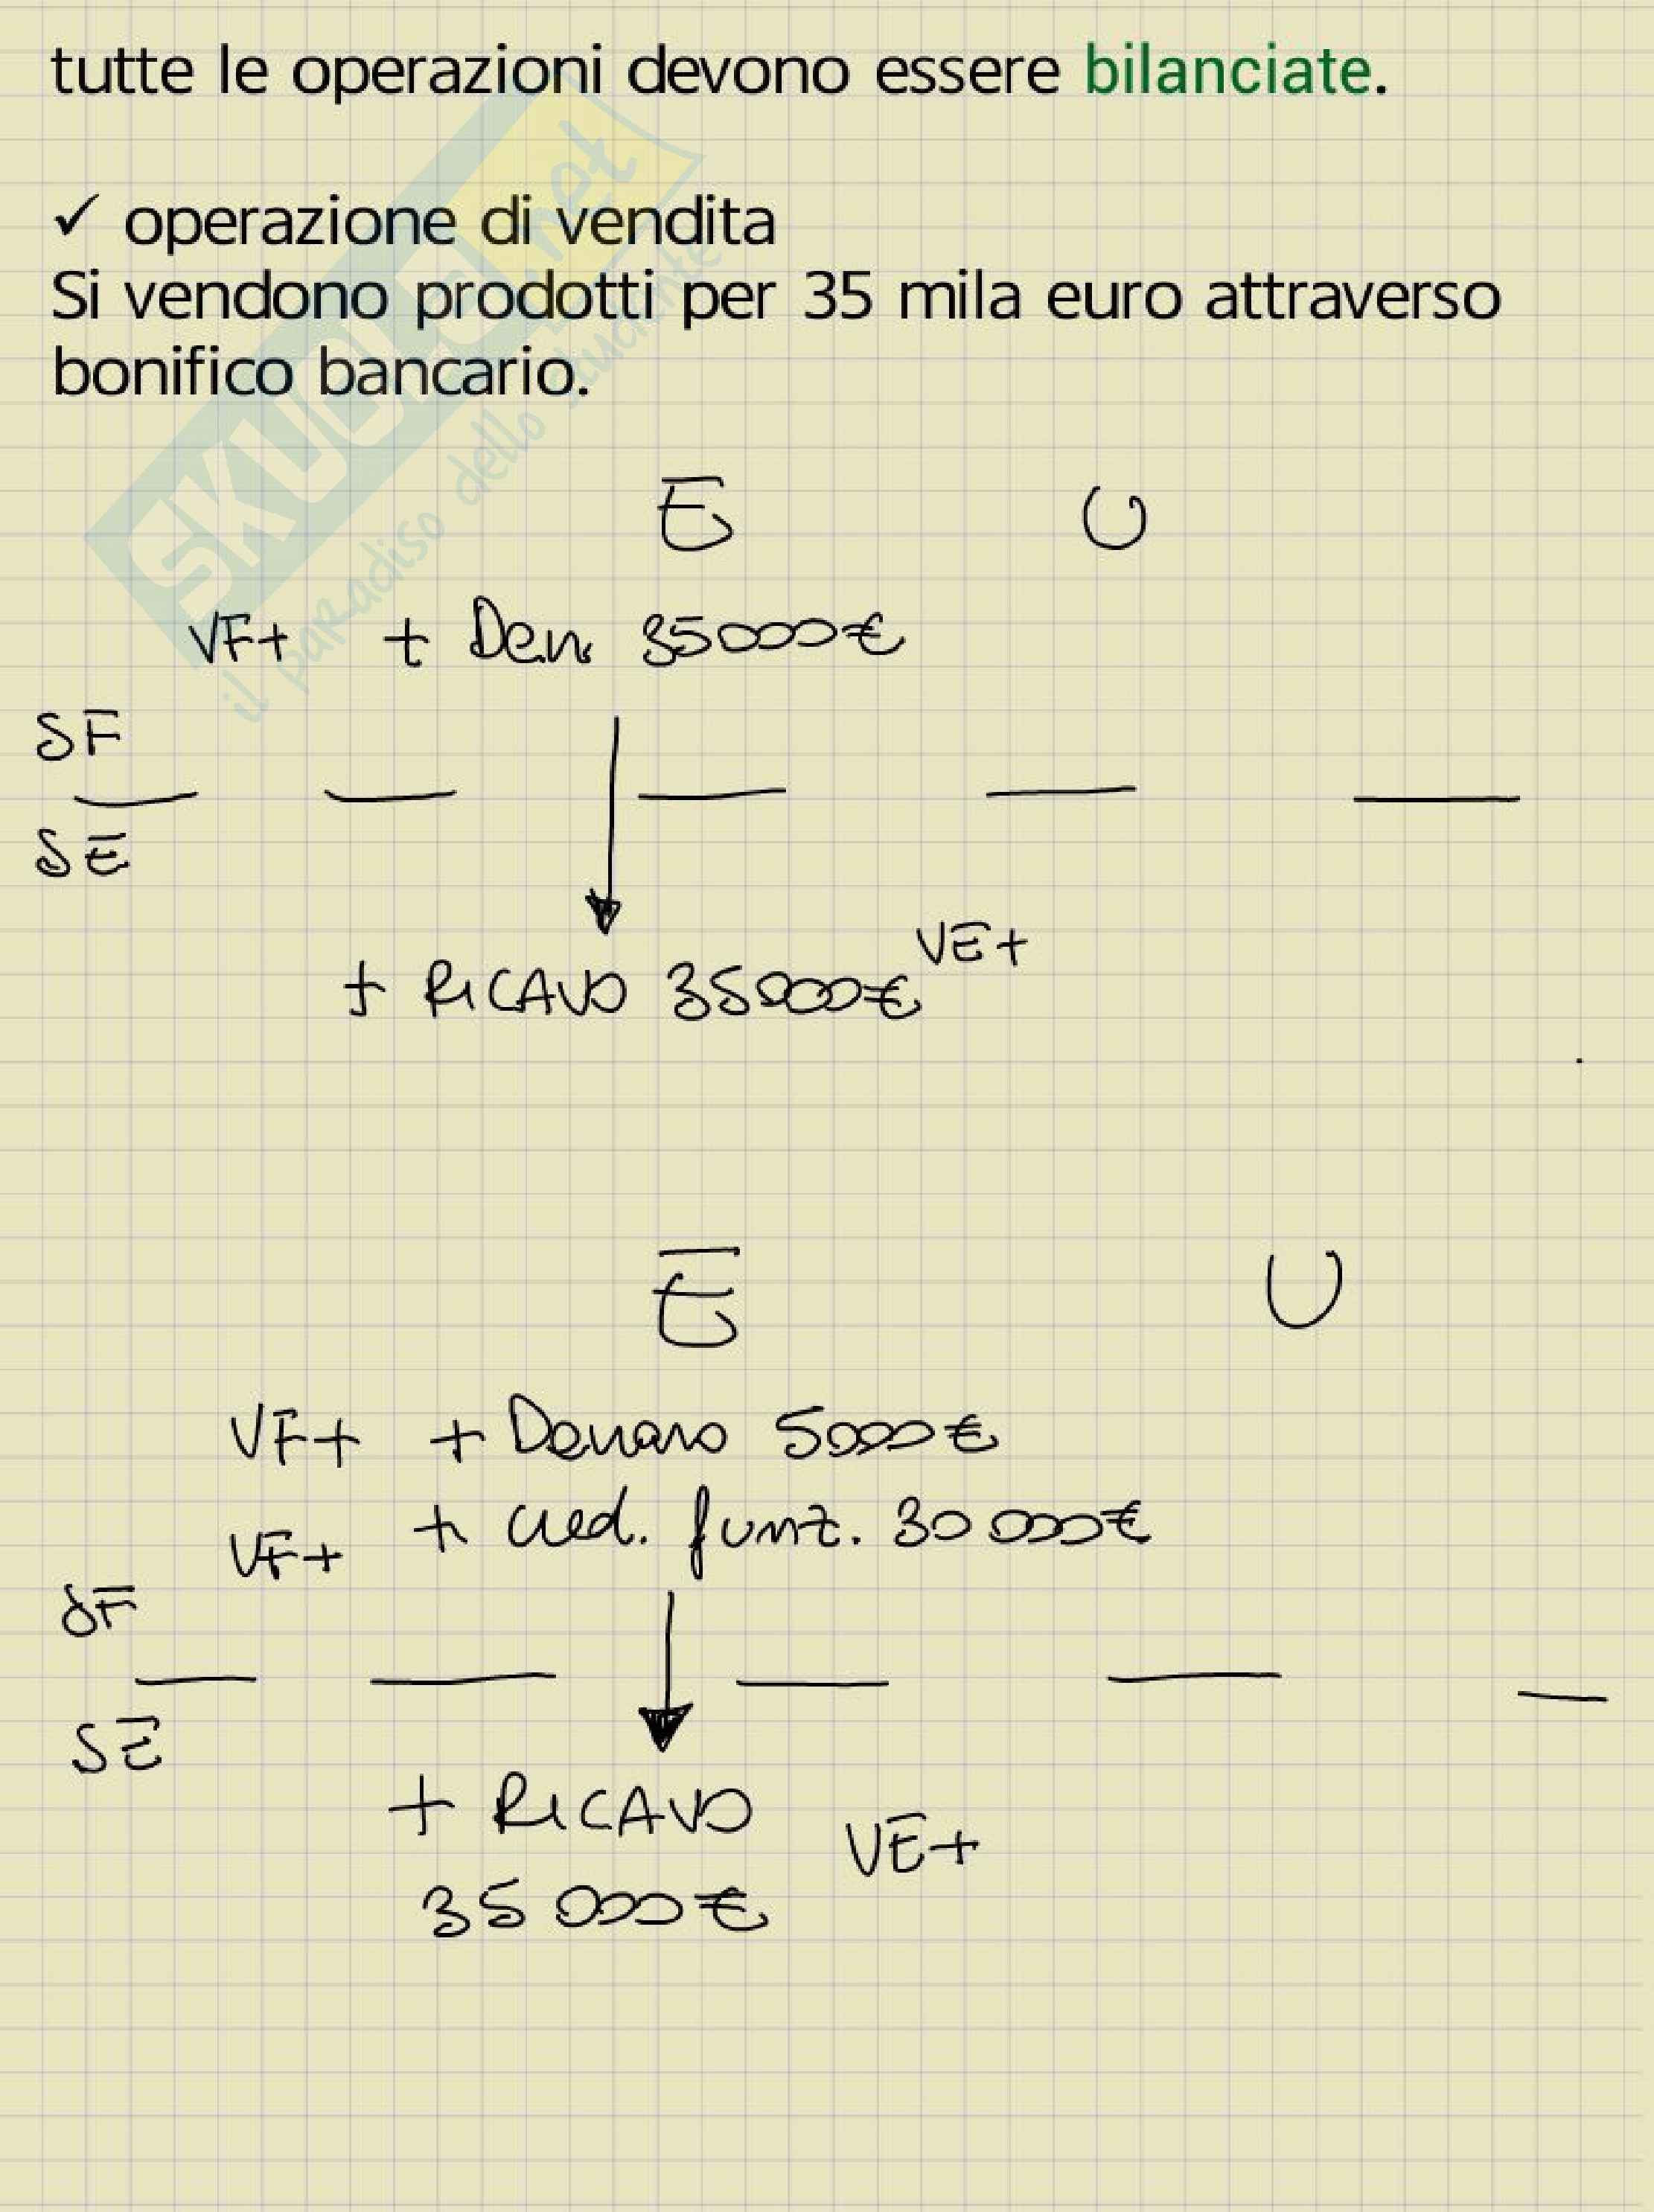 tutte le operazioni devono essere bilanciate.
✓ operazione di vendita
Si vendono prodotti per 35 mila euro attraverso
bonifico bancario.
SKUOLA.net
il paradiso dello studente
E U
VF+ + Den. 35000€
SF
SE
VE+
+ RICAVO 35000€
E U
VF+ + Denaro 5000€
VF+ + cred. funz. 30 000€
SF
SE
+ RICAVO
VE+
35 000€